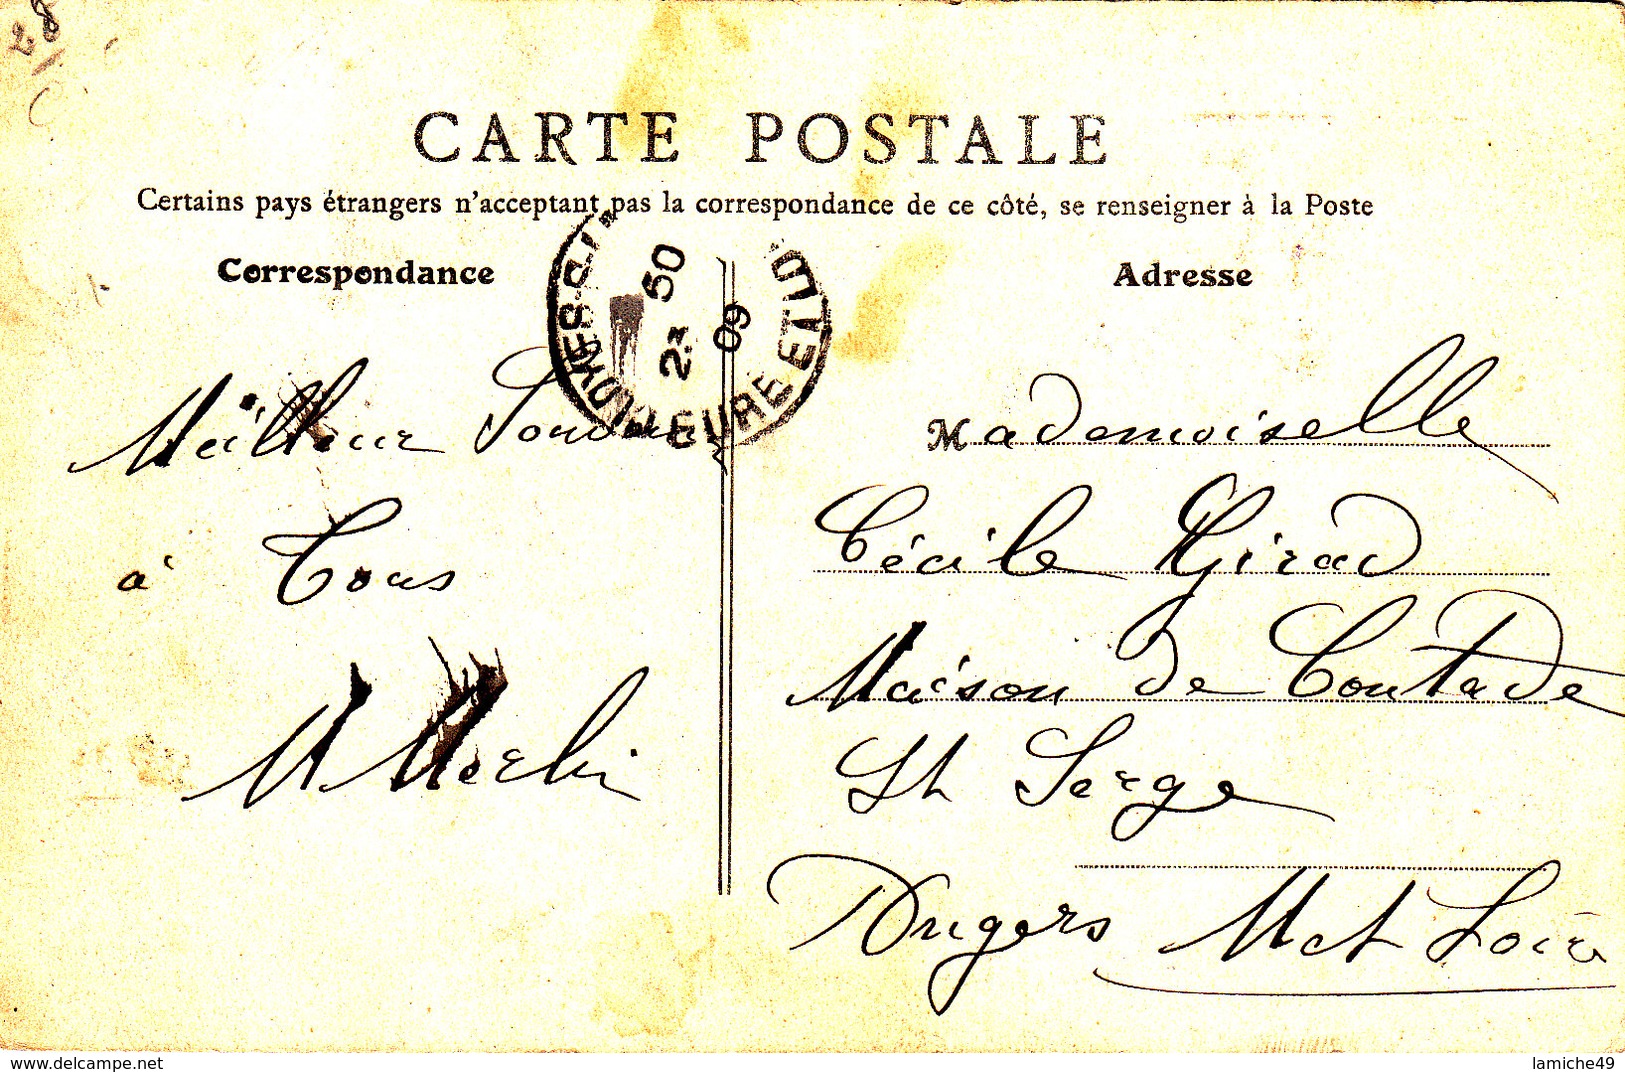 28
CARTE POSTALE
Certains pays étrangers n'acceptant pas la correspondance de ce côté, se renseigner à la Poste
Correspondance
Adresse
50
2
09
EURE ET L
Meilleur Souvenir
à Tous
M
Mademoiselle
Cécile Girad
Maison de Contade
St Serge
Angers M et Loire
www.delcampe.net
lamiche49